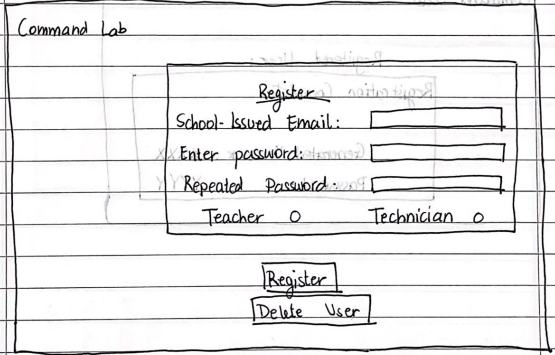 Command Lab
Register
School-Issued Email:
Enter password:
Repeated Password:
Teacher O Technician O
Register
Delete User